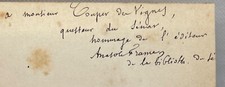 a monsieur Touper de Vignes,
questeur du Sénat,
hommage de l'éditeur
Anatole France
de la biblioth. du Sé